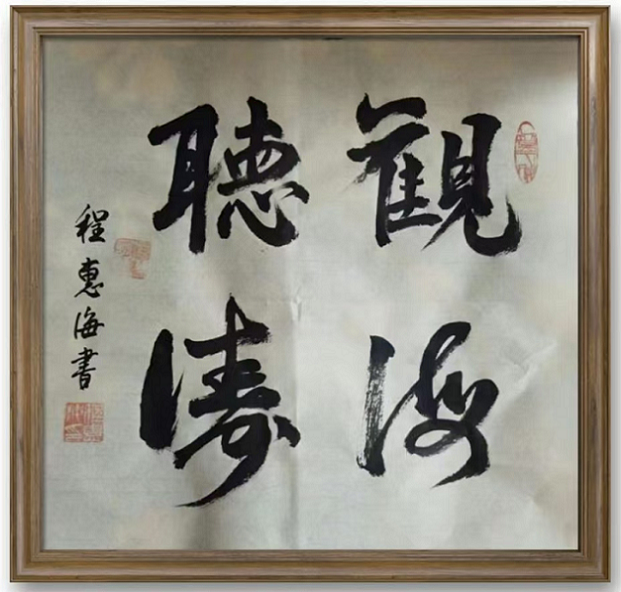 觀海
聽濤
程惠海書